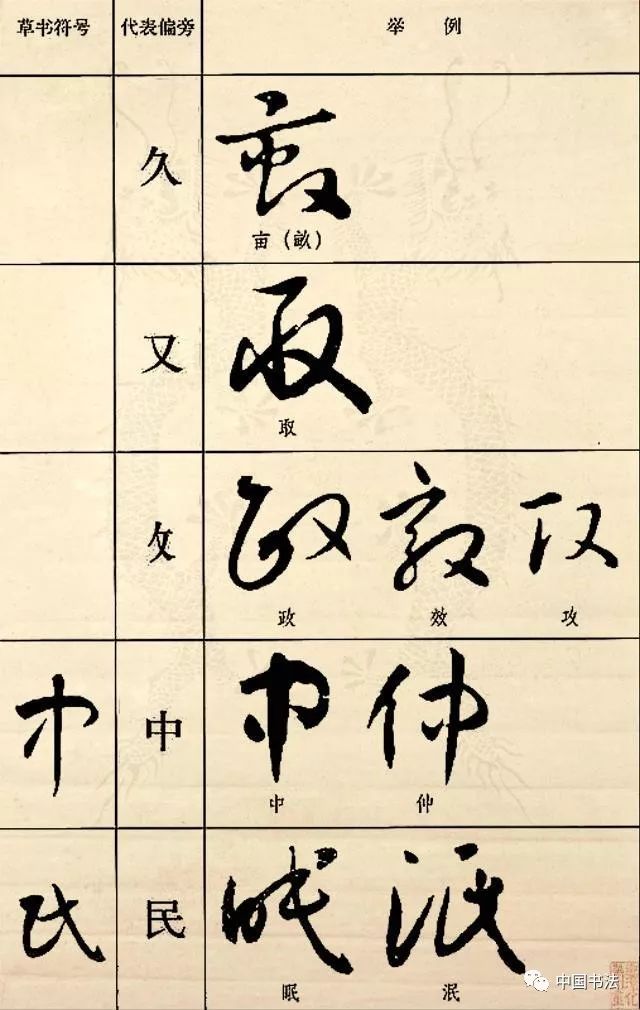 草书符号 代表偏旁 举例
久
亩（畝）
又
取
攵
政 效 攻
中
中 仲
民
眠 泯
中国书法